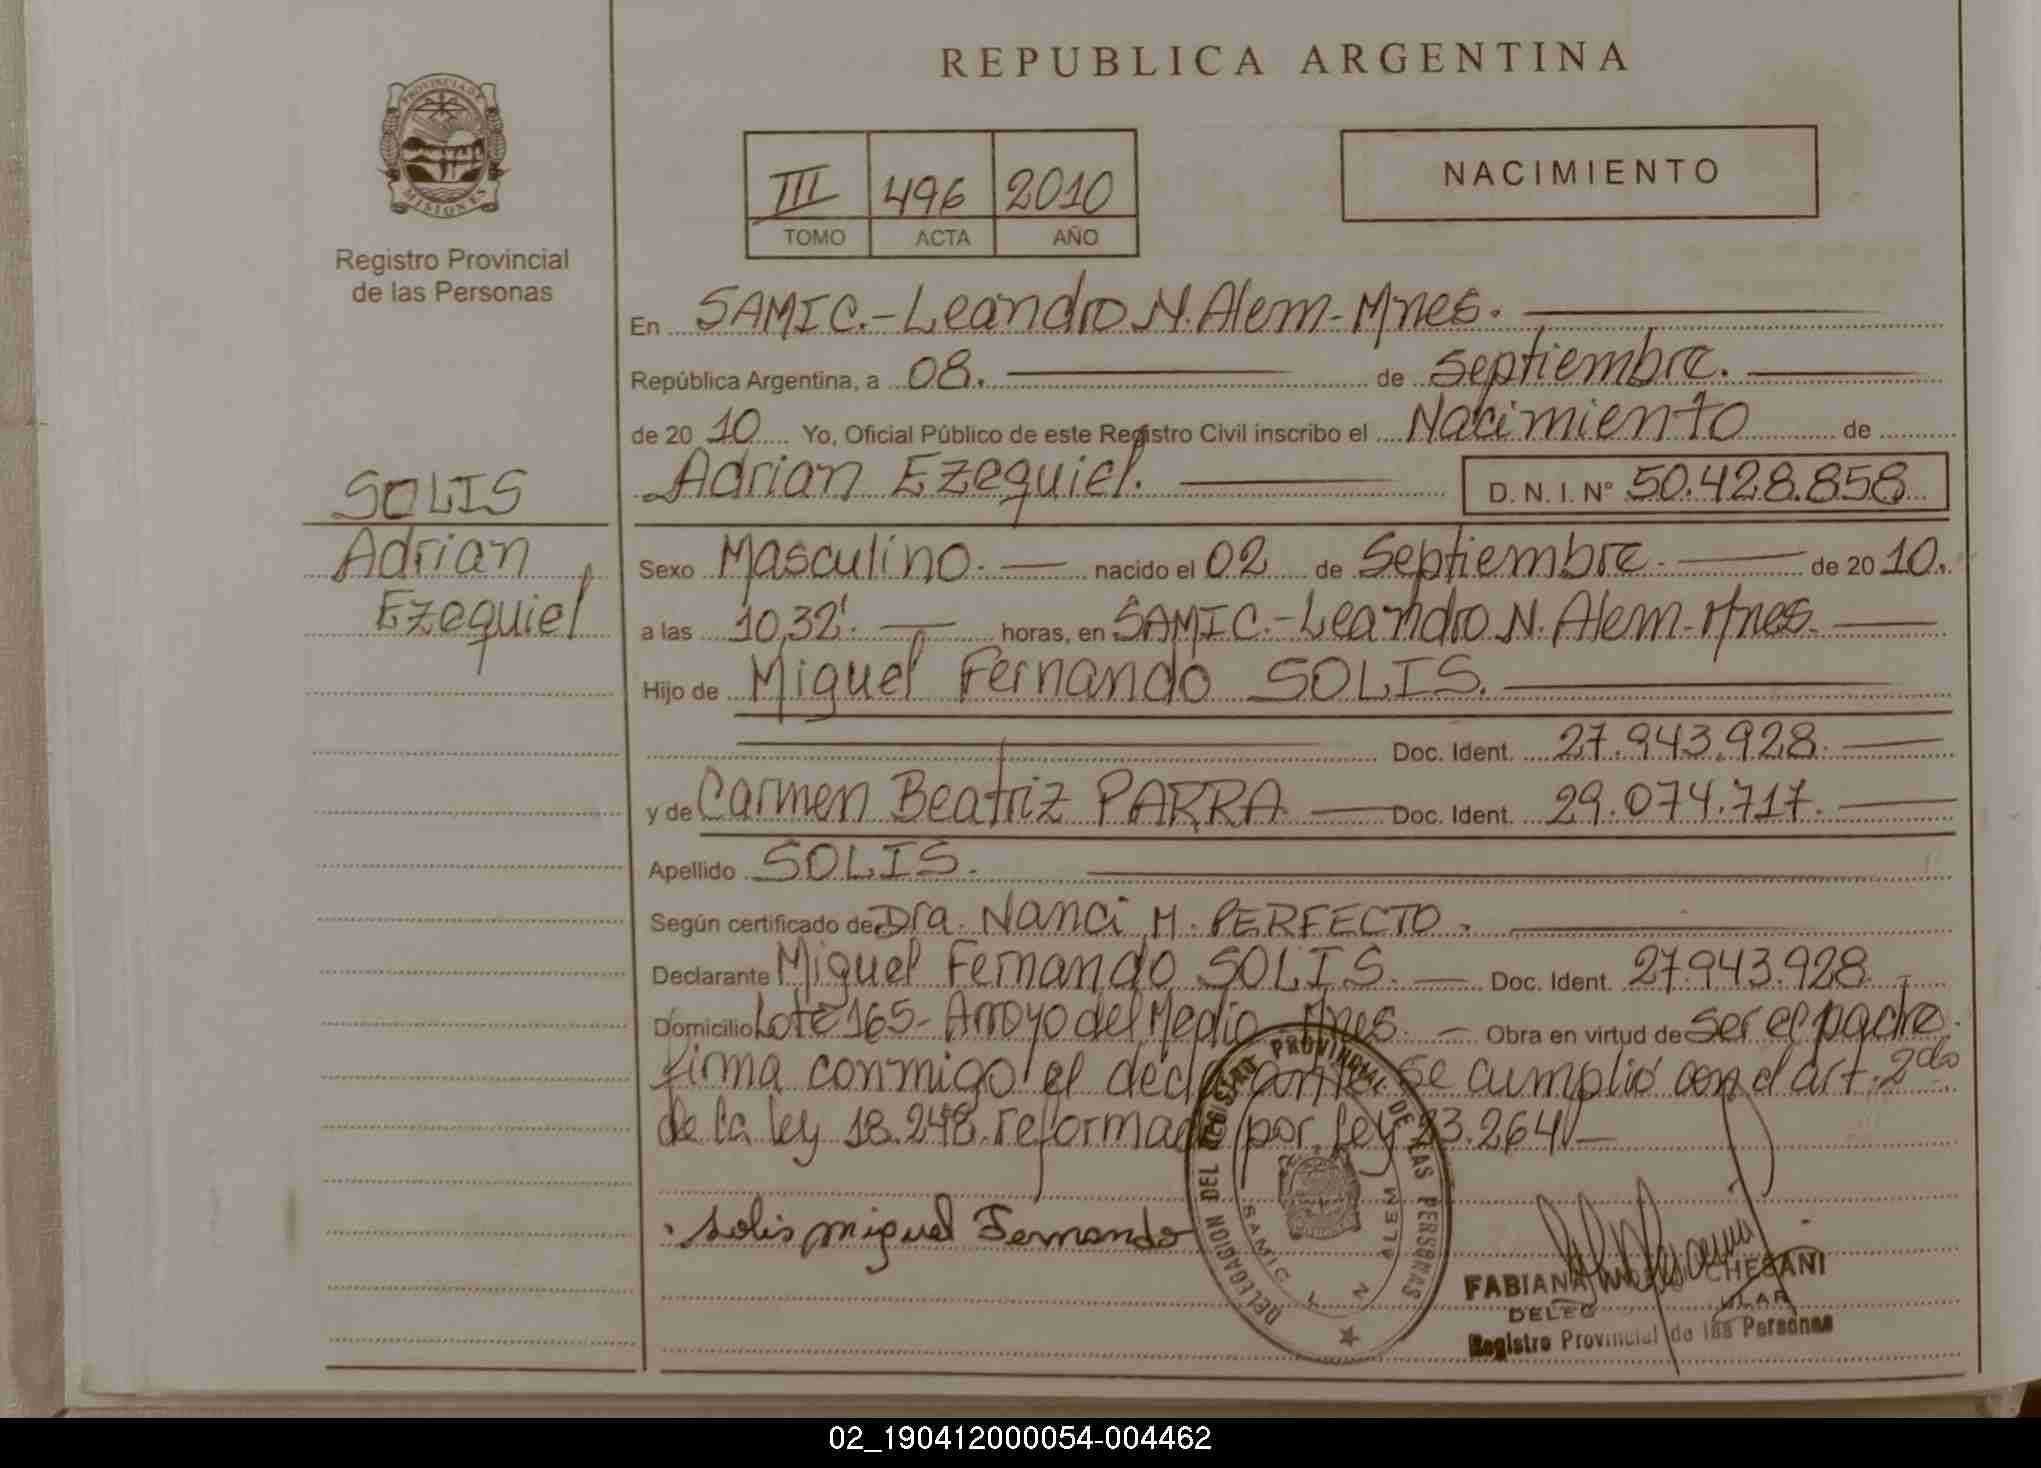 REPUBLICA ARGENTINA
PROVINCIA DE
MISIONES
Registro Provincial
de las Personas
III 496 2010
TOMO ACTA AÑO
NACIMIENTO
En SAMIC.-Leandro N. Alem-Mnes.
República Argentina, a 08. de Septiembre.
de 20 10 Yo, Oficial Público de este Registro Civil inscribo el Nacimiento de
Adrian Ezequiel. D. N. I. Nº 50.428.858
SOLIS
Adrian
Ezequiel
Sexo Masculino. nacido el 02 de Septiembre. de 20 10.
a las 10,32'. horas, en SAMIC.-Leandro N. Alem-Mnes.
Hijo de Miguel Fernando SOLIS.
Doc. Ident. 27.943.928.
y de Carmen Beatriz PARRA Doc. Ident. 29.074.717.
Apellido SOLIS.
Según certificado de Dra. Nanci M. PERFECTO.
Declarante Miguel Fernando SOLIS. Doc. Ident. 27.943.928.
Domicilio Lote 165- Arroyo del Medio Mnes. Obra en virtud de ser el padre.
firma conmigo el declarante. Se cumplió con el art. 2do
de la ley 18.248. reformado por ley 23.264/-
DELEGACION DEL REGISTRO PROVINCIAL DE LAS PERSONAS
SAMIC L N ALEM
Solis Miguel Fernando
FABIANA CHESANI
Registro Provincial de las Personas
02_190412000054-004462